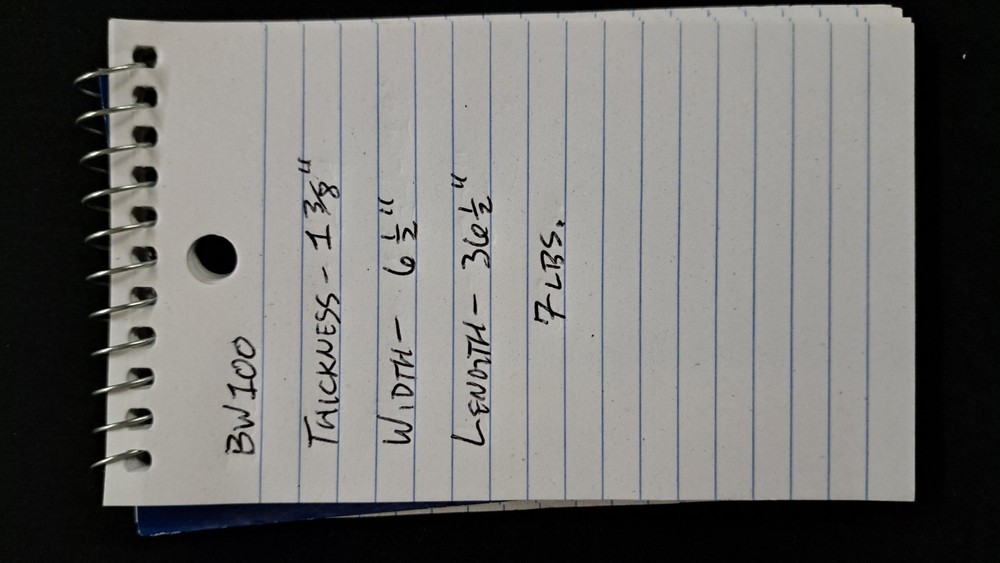 BW100
THICKNESS - 1 3/8"
WIDTH - 6 1/2"
LENGTH - 36 1/2"
7 LBS.